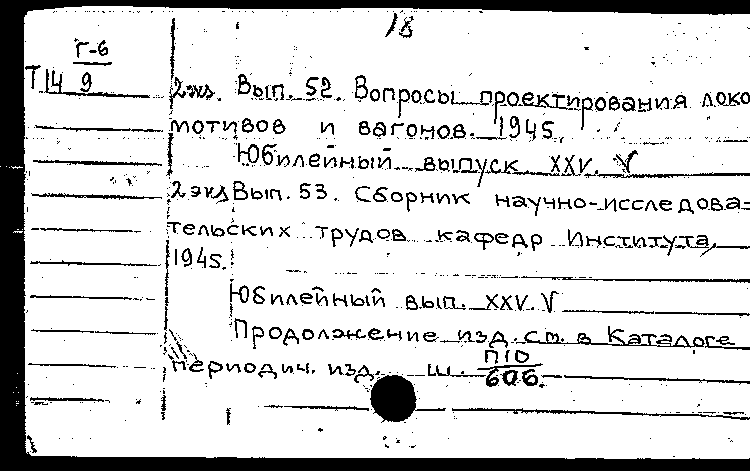 18
Г-6
Т14 9
2экз. Вып. 52. Вопросы проектирования локо
мотивов и вагонов. 1945.
Юбилейный выпуск XXV. V
2 экз Вып. 53. Сборник научно-исследова=
тельских трудов кафедр Института,
1945.
Юбилейный вып. XXV. V
Продолжение изд. см. в Каталоге
периодич. изд. ш. П10
606.